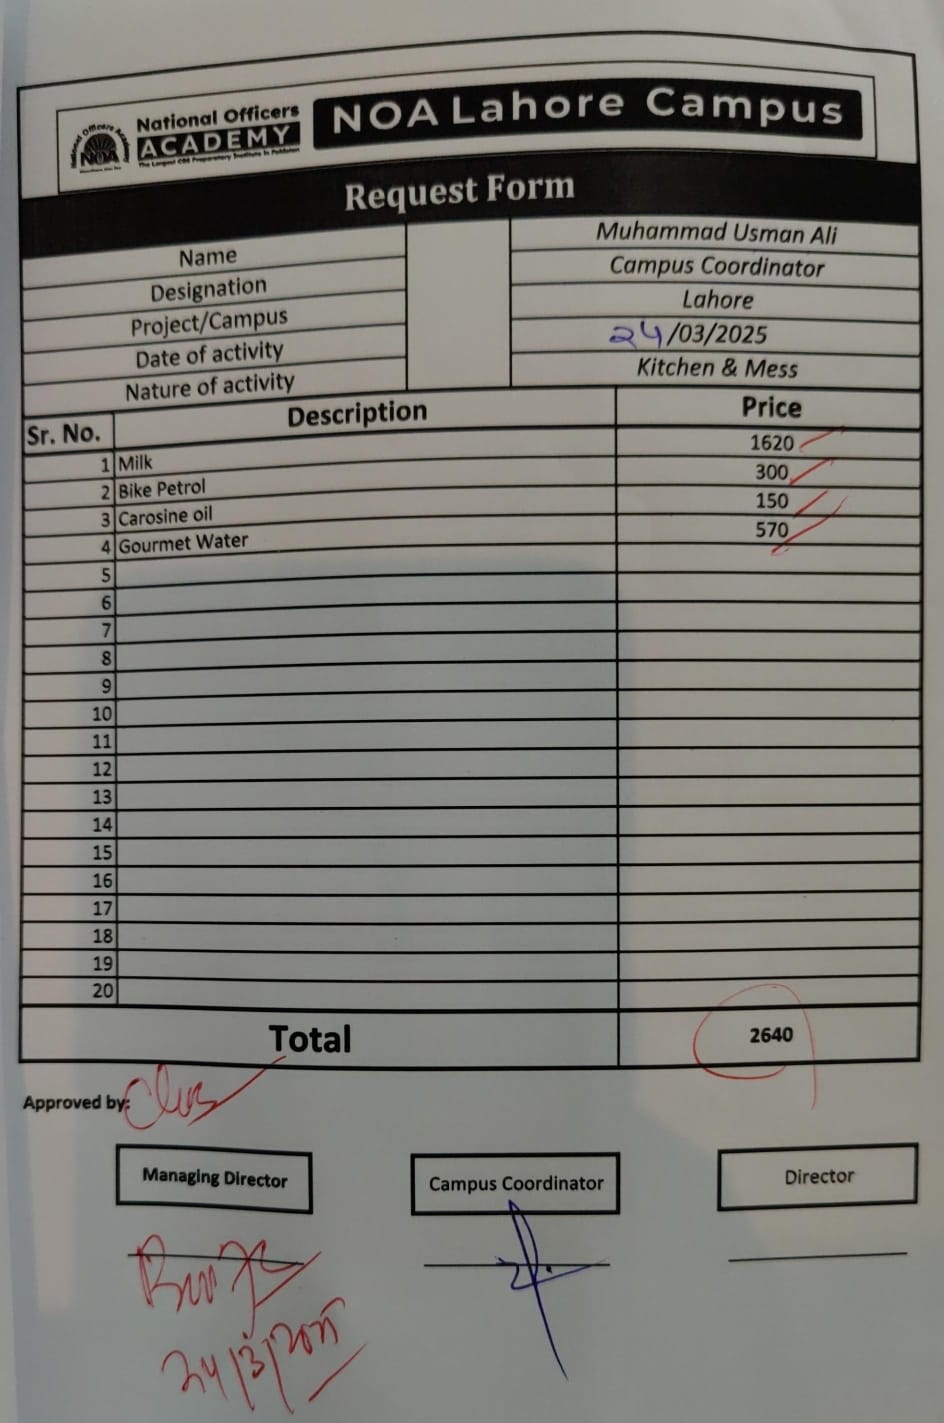 National Officers
ACADEMY
The Largest CSS Preparatory Institute in Pakistan
National Officers Academy
NOA
NOA Lahore Campus
Request Form
Name Muhammad Usman Ali
Designation Campus Coordinator
Project/Campus Lahore
Date of activity 24/03/2025
Nature of activity Kitchen & Mess
Sr. No. Description Price
1 Milk 1620
2 Bike Petrol 300
3 Carosine oil 150
4 Gourmet Water 570
5
6
7
8
9
10
11
12
13
14
15
16
17
18
19
20
Total 2640
Approved by:
Managing Director Campus Coordinator Director
24/3/2025